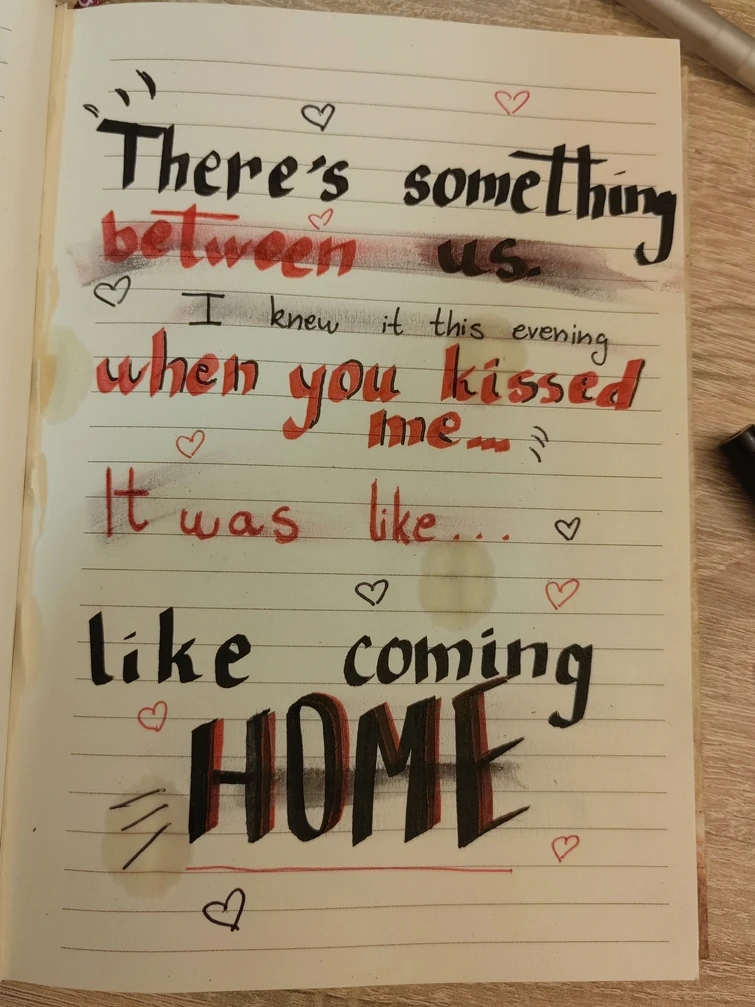 There's something
between us.
I knew it this evening
when you kissed
me...
It was like...
like coming
HOME